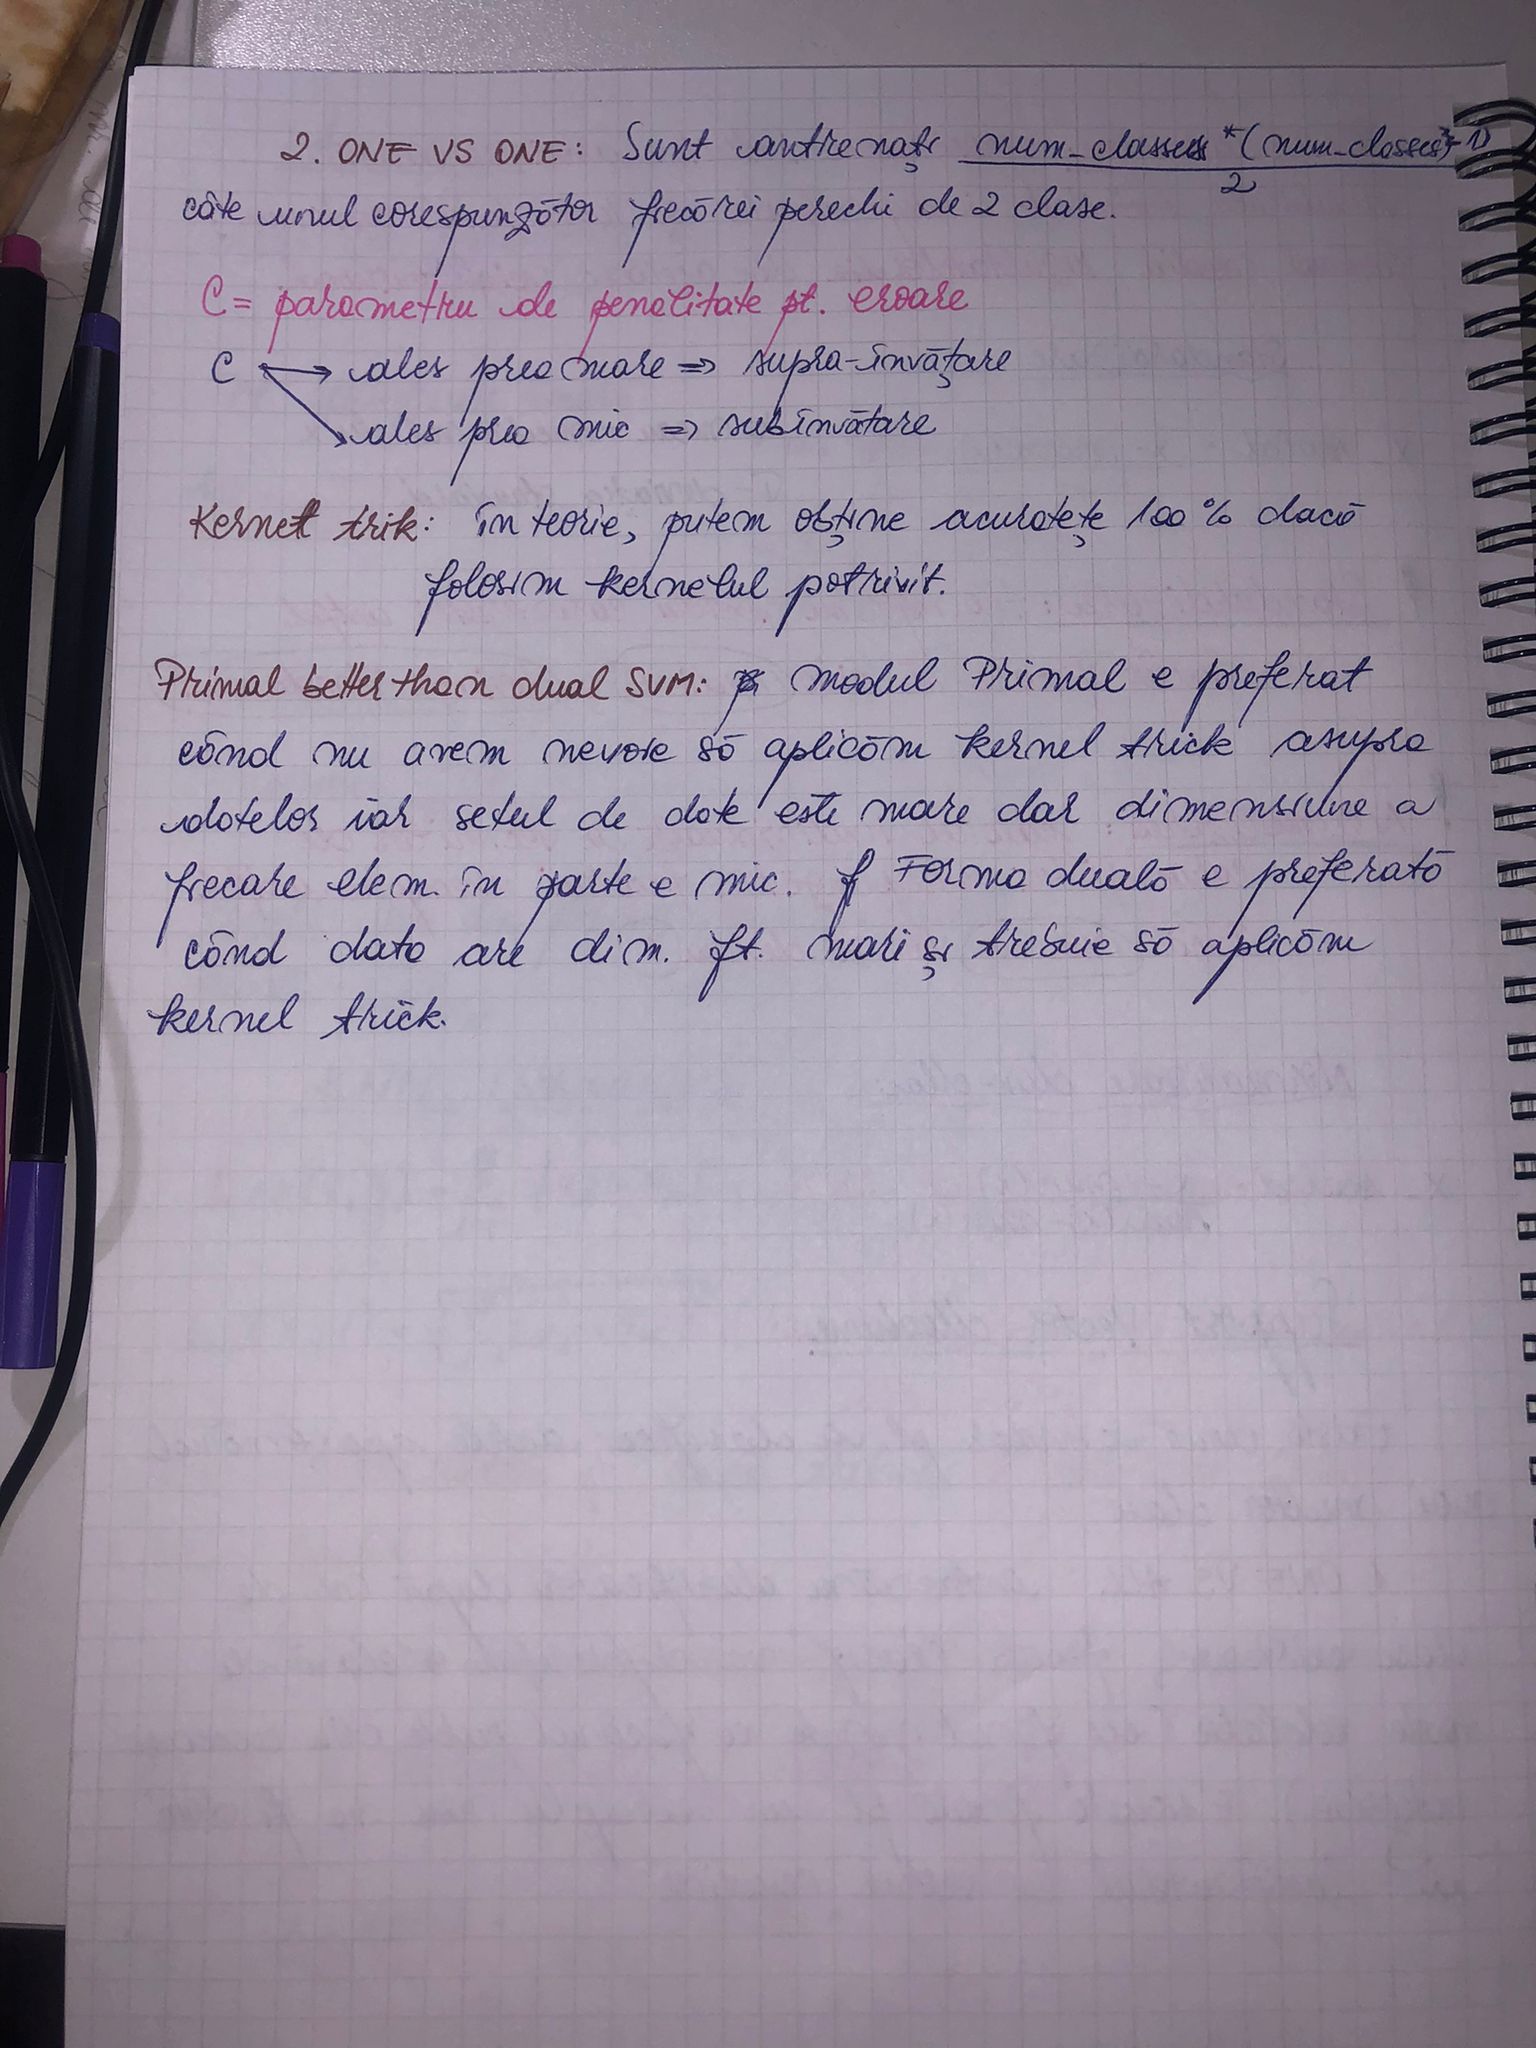 2. ONE VS ONE: Sunt antrenați num_classes * (num_classes - 1)
2
câte unul corespunzător fiecărei perechi de 2 clase.
C = parametru de penalitate pt. eroare
C → ales prea mare => supra-învățare
→ ales prea mic => subînvătare
Kernel trik: în teorie, putem obține acuratețe 100 % dacă
folosim kernelul potrivit.
Primal better than dual SVM: modul Primal e preferat
când nu avem nevoie să aplicăm kernel trick asupra
datelor iar setul de date este mare dar dimensiune a
fiecare elem. în parte e mic. Forma duală e preferată
când data are dim. ft. mari și trebuie să aplicăm
kernel trick.